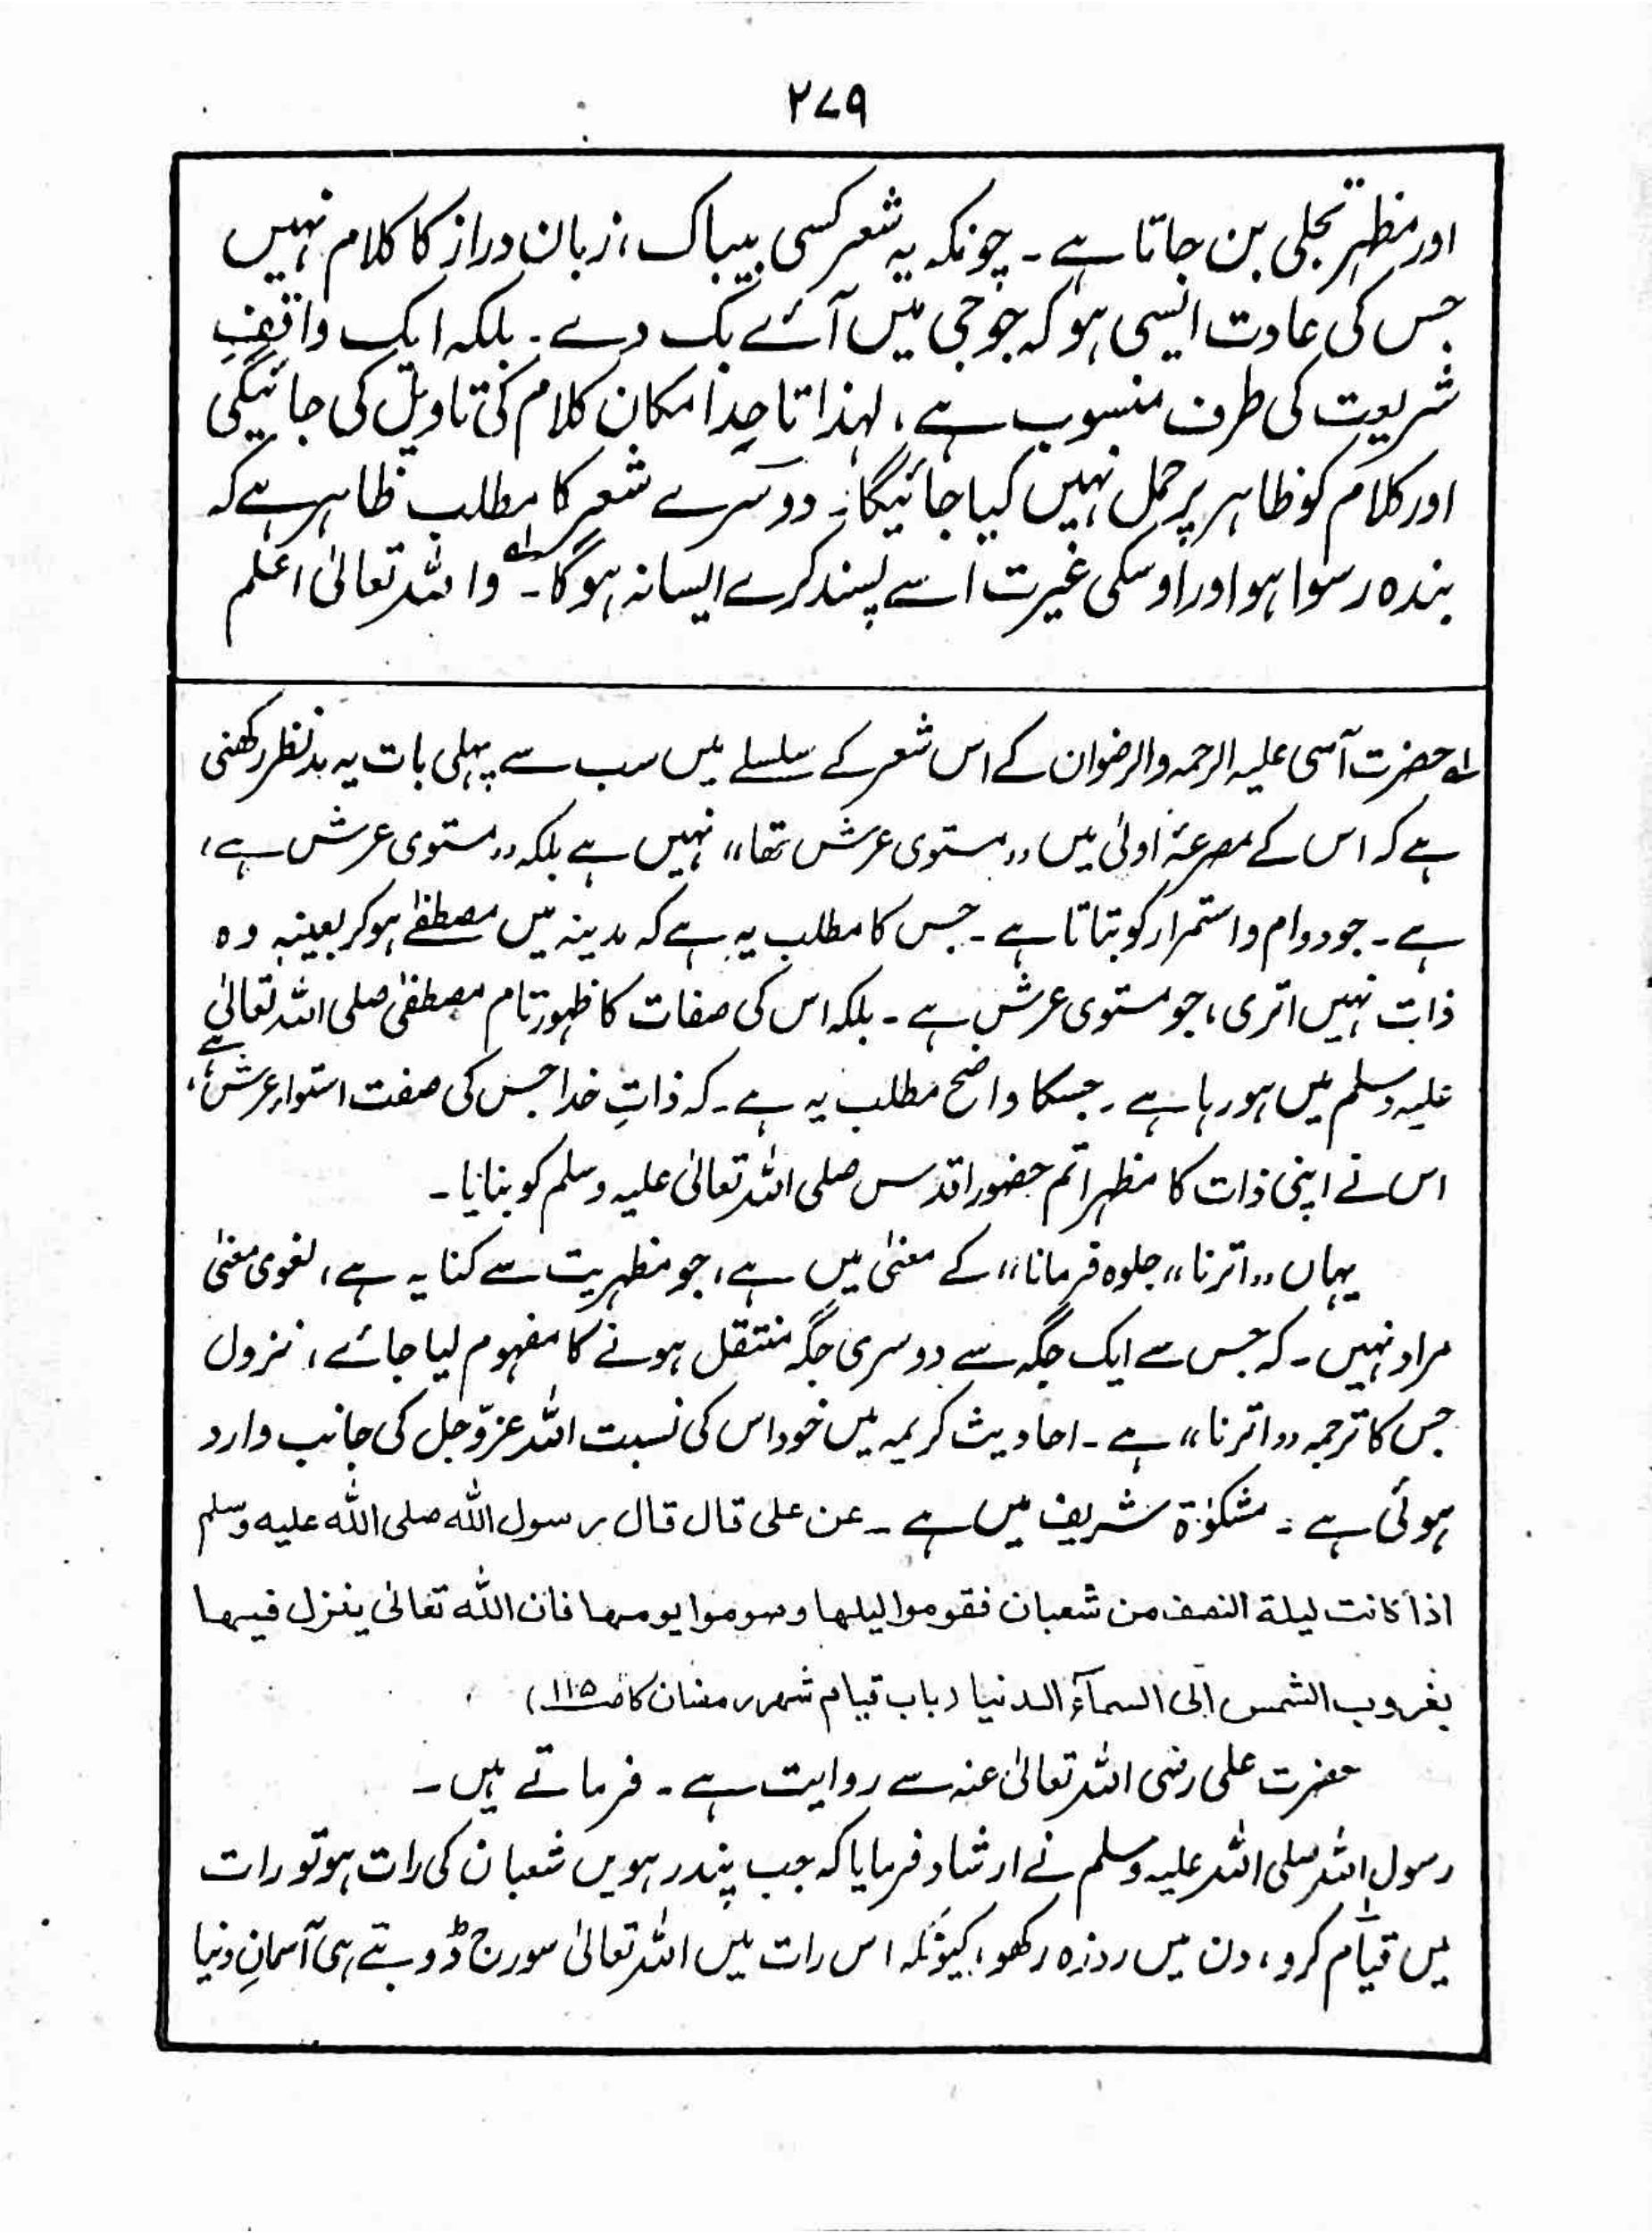 ۲۷۹
اور مظہر تجلی بن جاتا ہے ۔ چونکہ یہ شعر کسی بیباک، زبان دراز کا کلام نہیں
جس کی عادت ایسی ہو کہ جو جی میں آئے بک دے ۔ بلکہ ایک واقفِ
شریعت کی طرف منسوب ہے، لہذا تا حدِ امکان کلام کی تاویل کی جائیگی
اور کلام کو ظاہر پر حمل نہیں کیا جائیگا ۔ دوسرے شعر کا مطلب ظاہر ہے کہ
بندہ رسوا ہو اور اوسکی غیرت اسے پسند کرے ایسا نہ ہوگا ۔ ؎۱ واللہ تعالیٰ اعلم
؎۱ حضرت آسی علیہ الرحمہ والرضوان کے اس شعر کے سلسلے میں سب سے پہلی بات یہ مدنظر رکھنی
ہے کہ اس کے مصرعۂ اولیٰ میں ,,مستوی عرش تھا،، نہیں ہے بلکہ ,,مستوی عرش ہے،
ہے ۔ جو دوام و استمرار کو بتاتا ہے ۔ جس کا مطلب یہ ہے کہ مدینہ میں مصطفےٰ ہو کر بعینہٖ وہ
ذات نہیں اتری، جو مستوی عرش ہے ۔ بلکہ اس کی صفات کا ظہور تام مصطفیٰ صلی اللہ تعالیٰ
علیہ وسلم میں ہو رہا ہے ۔ جسکا واضح مطلب یہ ہے ۔ کہ ذاتِ خدا جس کی صفت استواء عرش ہے،
اس نے اپنی ذات کا مظہر اتم حضور اقدس صلی اللہ تعالیٰ علیہ وسلم کو بنایا ۔
یہاں ,,اترنا،، جلوہ فرمانا،، کے معنیٰ میں ہے، جو مظہریت سے کنایہ ہے، لغوی معنیٰ
مراد نہیں ۔ کہ جس سے ایک جگہ سے دوسری جگہ منتقل ہونے کا مفہوم لیا جائے، نزول
جس کا ترجمہ ,,اترنا،، ہے ۔ احادیث کریمہ میں خود اس کی نسبت اللہ عزّوجل کی جانب وارد
ہوئی ہے ۔ مشکوٰۃ شریف میں ہے ۔ عن علی قال قال رسول اللہ صلی اللہ علیہ وسلم
اذا کانت لیلة النصف من شعبان فقوموا لیلها وصوموا یومها فان اللہ تعالیٰ ینزل فیها
بغروب الشمس الی السمآء الدنیا (باب قیام شهر رمضان کا ص۱۱۵)
حضرت علی رضی اللہ تعالیٰ عنہ سے روایت ہے ۔ فرماتے ہیں ۔
رسول اللہ صلی اللہ علیہ وسلم نے ارشاد فرمایا کہ جب پندرہویں شعبان کی رات ہو تو رات
میں قیام کرو، دن میں روزہ رکھو، کیونکہ اس رات میں اللہ تعالیٰ سورج ڈوبتے ہی آسمانِ دنیا